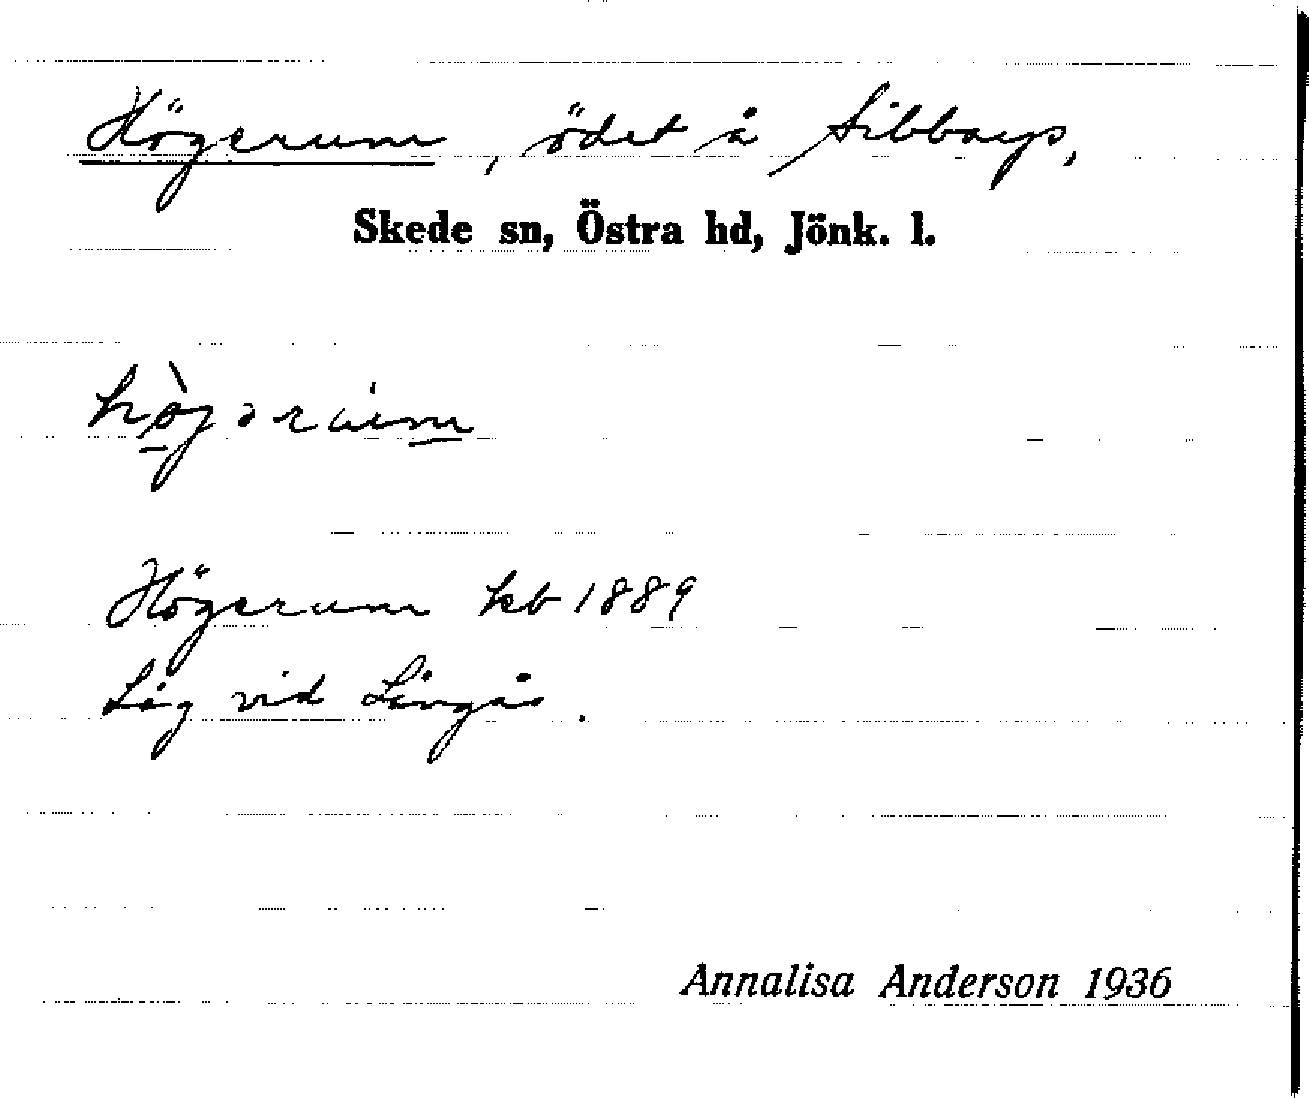 Högerum, ödet å Sibbarp,
Skede sn, Östra hd, Jönk. l.
hø̀jərum
Högerum kb 1889
Låg vid Långås.
Annalisa Anderson 1936